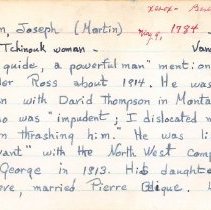 xerox -
m, Joseph (Martin) May 9, 1784.
Tchinouk woman - Van
guide, a powerful man" ment on
der Ross about 1914. He was
n with David Thompson in Monta
o was "impudent; I dislocated m
m thrashing him." He was li
vant" with the North West comp
George in 1913. His daughte
eve, married Pierre